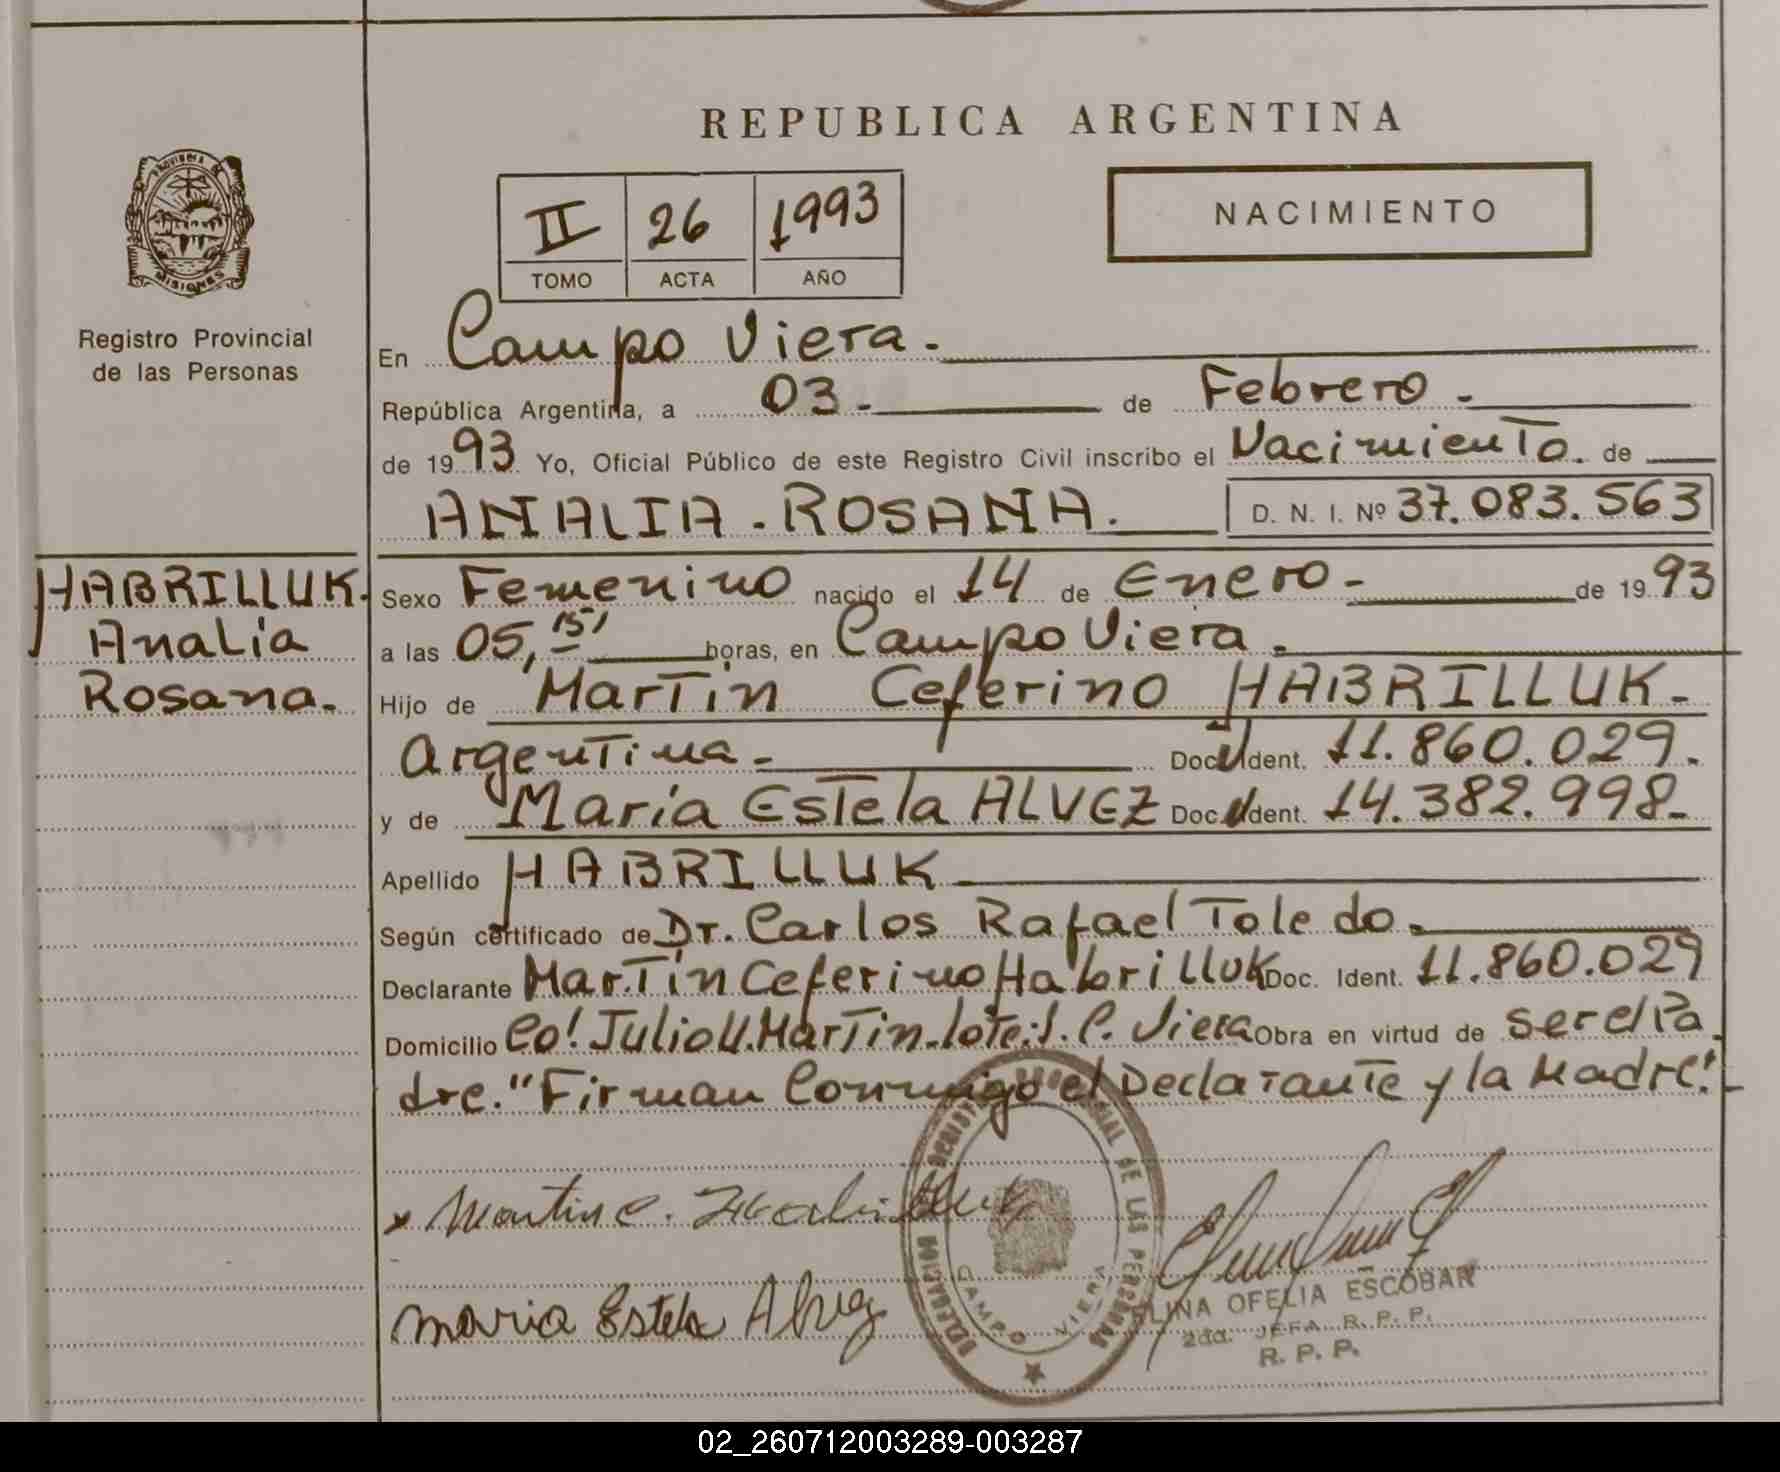 REPUBLICA ARGENTINA
PROVINCIA DE
MISIONES
Registro Provincial
de las Personas
II 26 1993
TOMO ACTA AÑO
NACIMIENTO
En Campo Viera.
República Argentina, a 03. de Febrero.
de 1993 Yo, Oficial Público de este Registro Civil inscribo el Nacimiento. de
ANALIA.ROSANA. D. N. I. Nº 37.083.563
HABRILLUK.
Analía
Rosana.
Sexo Femenino nacido el 14 de Enero de 1993
a las 05,15' horas, en Campo Viera.
Hijo de Martín Ceferino HABRILLUK.
Argentina. Doc. Ident. 11.860.029.
y de María Estela ALVEZ Doc. Ident. 14.382.998
Apellido HABRILLUK
Según certificado de Dr. Carlos Rafael Toledo.
Declarante Martín Ceferino Habrilluk Doc. Ident. 11.860.029
Domicilio Co! Julio U. Martin.lote:1. C. Viera Obra en virtud de ser el Pa
dre. "Firman Conmigo el Declarante y la Madre".
x Martin C. Habrilluk
Maria Estela Alvez
DELEGACION REGISTRO PROVINCIAL DE LAS PERSONAS
CAMPO VIERA
ELINA OFELIA ESCOBAR
2da. JEFA R. P. P.
R. P. P.
02_260712003289-003287